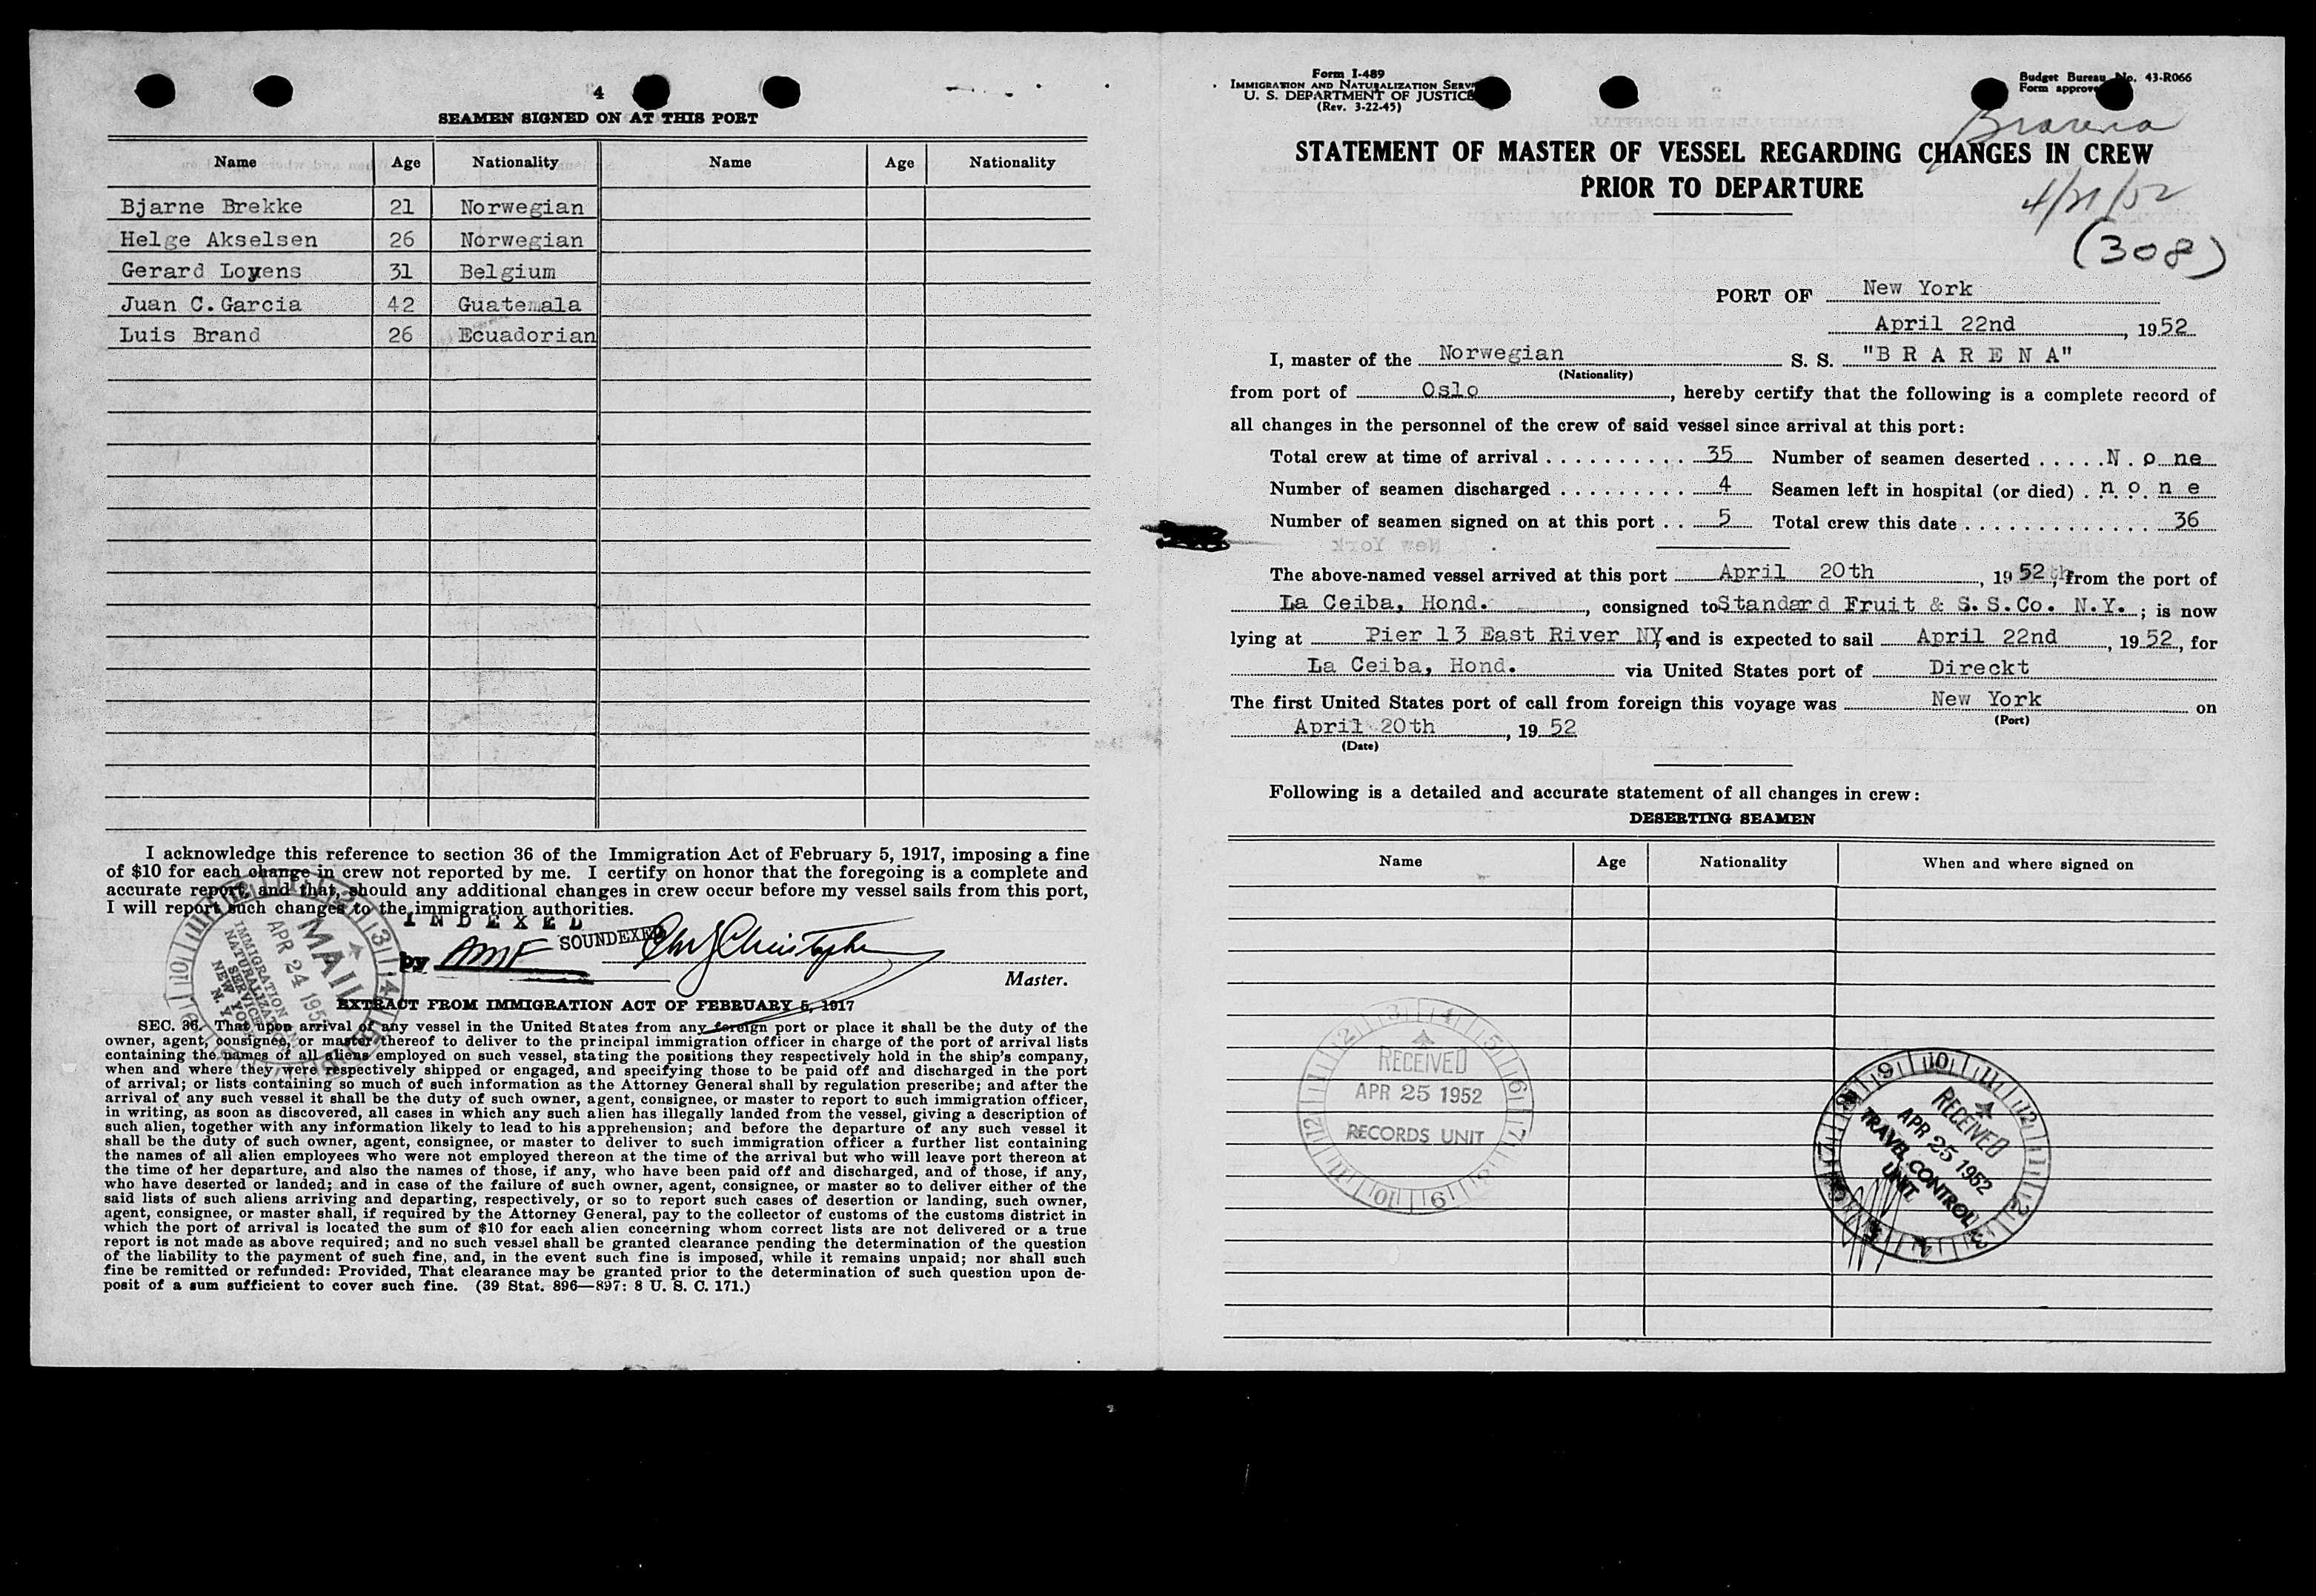 4
SEAMEN SIGNED ON AT THIS PORT
Name Age Nationality Name Age Nationality
Bjarne Brekke 21 Norwegian
Helge Akselsen 26 Norwegian
Gerard Loyens 31 Belgium
Juan C. Garcia 42 Guatemala
Luis Brand 26 Ecuadorian
I acknowledge this reference to section 36 of the Immigration Act of February 5, 1917, imposing a fine
of $10 for each change in crew not reported by me. I certify on honor that the foregoing is a complete and
accurate report, and that, should any additional changes in crew occur before my vessel sails from this port,
I will report such changes to the immigration authorities.
INDEXED
SOUNDEXED
by AMF
Master.
MAIL
APR 24 195
IMMIGRATION
NATURALIZATION
SERVICE
NEW YORK
N. Y.
EXTRACT FROM IMMIGRATION ACT OF FEBRUARY 5, 1917
SEC. 36. That upon arrival of any vessel in the United States from any foreign port or place it shall be the duty of the
owner, agent, consignee, or master thereof to deliver to the principal immigration officer in charge of the port of arrival lists
containing the names of all aliens employed on such vessel, stating the positions they respectively hold in the ship's company,
when and where they were respectively shipped or engaged, and specifying those to be paid off and discharged in the port
of arrival; or lists containing so much of such information as the Attorney General shall by regulation prescribe; and after the
arrival of any such vessel it shall be the duty of such owner, agent, consignee, or master to report to such immigration officer,
in writing, as soon as discovered, all cases in which any such alien has illegally landed from the vessel, giving a description of
such alien, together with any information likely to lead to his apprehension; and before the departure of any such vessel it
shall be the duty of such owner, agent, consignee, or master to deliver to such immigration officer a further list containing
the names of all alien employees who were not employed thereon at the time of the arrival but who will leave port thereon at
the time of her departure, and also the names of those, if any, who have been paid off and discharged, and of those, if any,
who have deserted or landed; and in case of the failure of such owner, agent, consignee, or master so to deliver either of the
said lists of such aliens arriving and departing, respectively, or so to report such cases of desertion or landing, such owner,
agent, consignee, or master shall, if required by the Attorney General, pay to the collector of customs of the customs district in
which the port of arrival is located the sum of $10 for each alien concerning whom correct lists are not delivered or a true
report is not made as above required; and no such vessel shall be granted clearance pending the determination of the question
of the liability to the payment of such fine, and, in the event such fine is imposed, while it remains unpaid; nor shall such
fine be remitted or refunded: Provided, That clearance may be granted prior to the determination of such question upon de-
posit of a sum sufficient to cover such fine. (39 Stat. 896—897: 8 U. S. C. 171.)
Form I-489
IMMIGRATION AND NATURALIZATION SERV
U. S. DEPARTMENT OF JUSTICE
(Rev. 3-22-45)
Budget Bureau No. 43-R066
Form approve
Brarena
STATEMENT OF MASTER OF VESSEL REGARDING CHANGES IN CREW
PRIOR TO DEPARTURE
4/21/52
(308)
PORT OF New York
April 22nd, 1952
I, master of the Norwegian S. S. "B R A R E N A"
(Nationality)
from port of Oslo, hereby certify that the following is a complete record of
all changes in the personnel of the crew of said vessel since arrival at this port:
Total crew at time of arrival . . . . . . . . . . 35 Number of seamen deserted . . . . . N o ne
Number of seamen discharged . . . . . . . . . 4 Seamen left in hospital (or died) . n o n e
Number of seamen signed on at this port . . 5 Total crew this date . . . . . . . . . . . . . . 36
The above-named vessel arrived at this port April 20th, 1952, from the port of
La Ceiba, Hond., consigned to Standard Fruit & S.S.Co. N.Y.; is now
lying at Pier 13 East River NY, and is expected to sail April 22nd, 1952, for
La Ceiba, Hond. via United States port of Direckt
The first United States port of call from foreign this voyage was New York on
(Port)
April 20th, 1952
(Date)
Following is a detailed and accurate statement of all changes in crew:
DESERTING SEAMEN
Name Age Nationality When and where signed on
RECEIVED
APR 25 1952
RECORDS UNIT
RECEIVED
APR 25 1952
TRAVEL CONTROL
UNIT